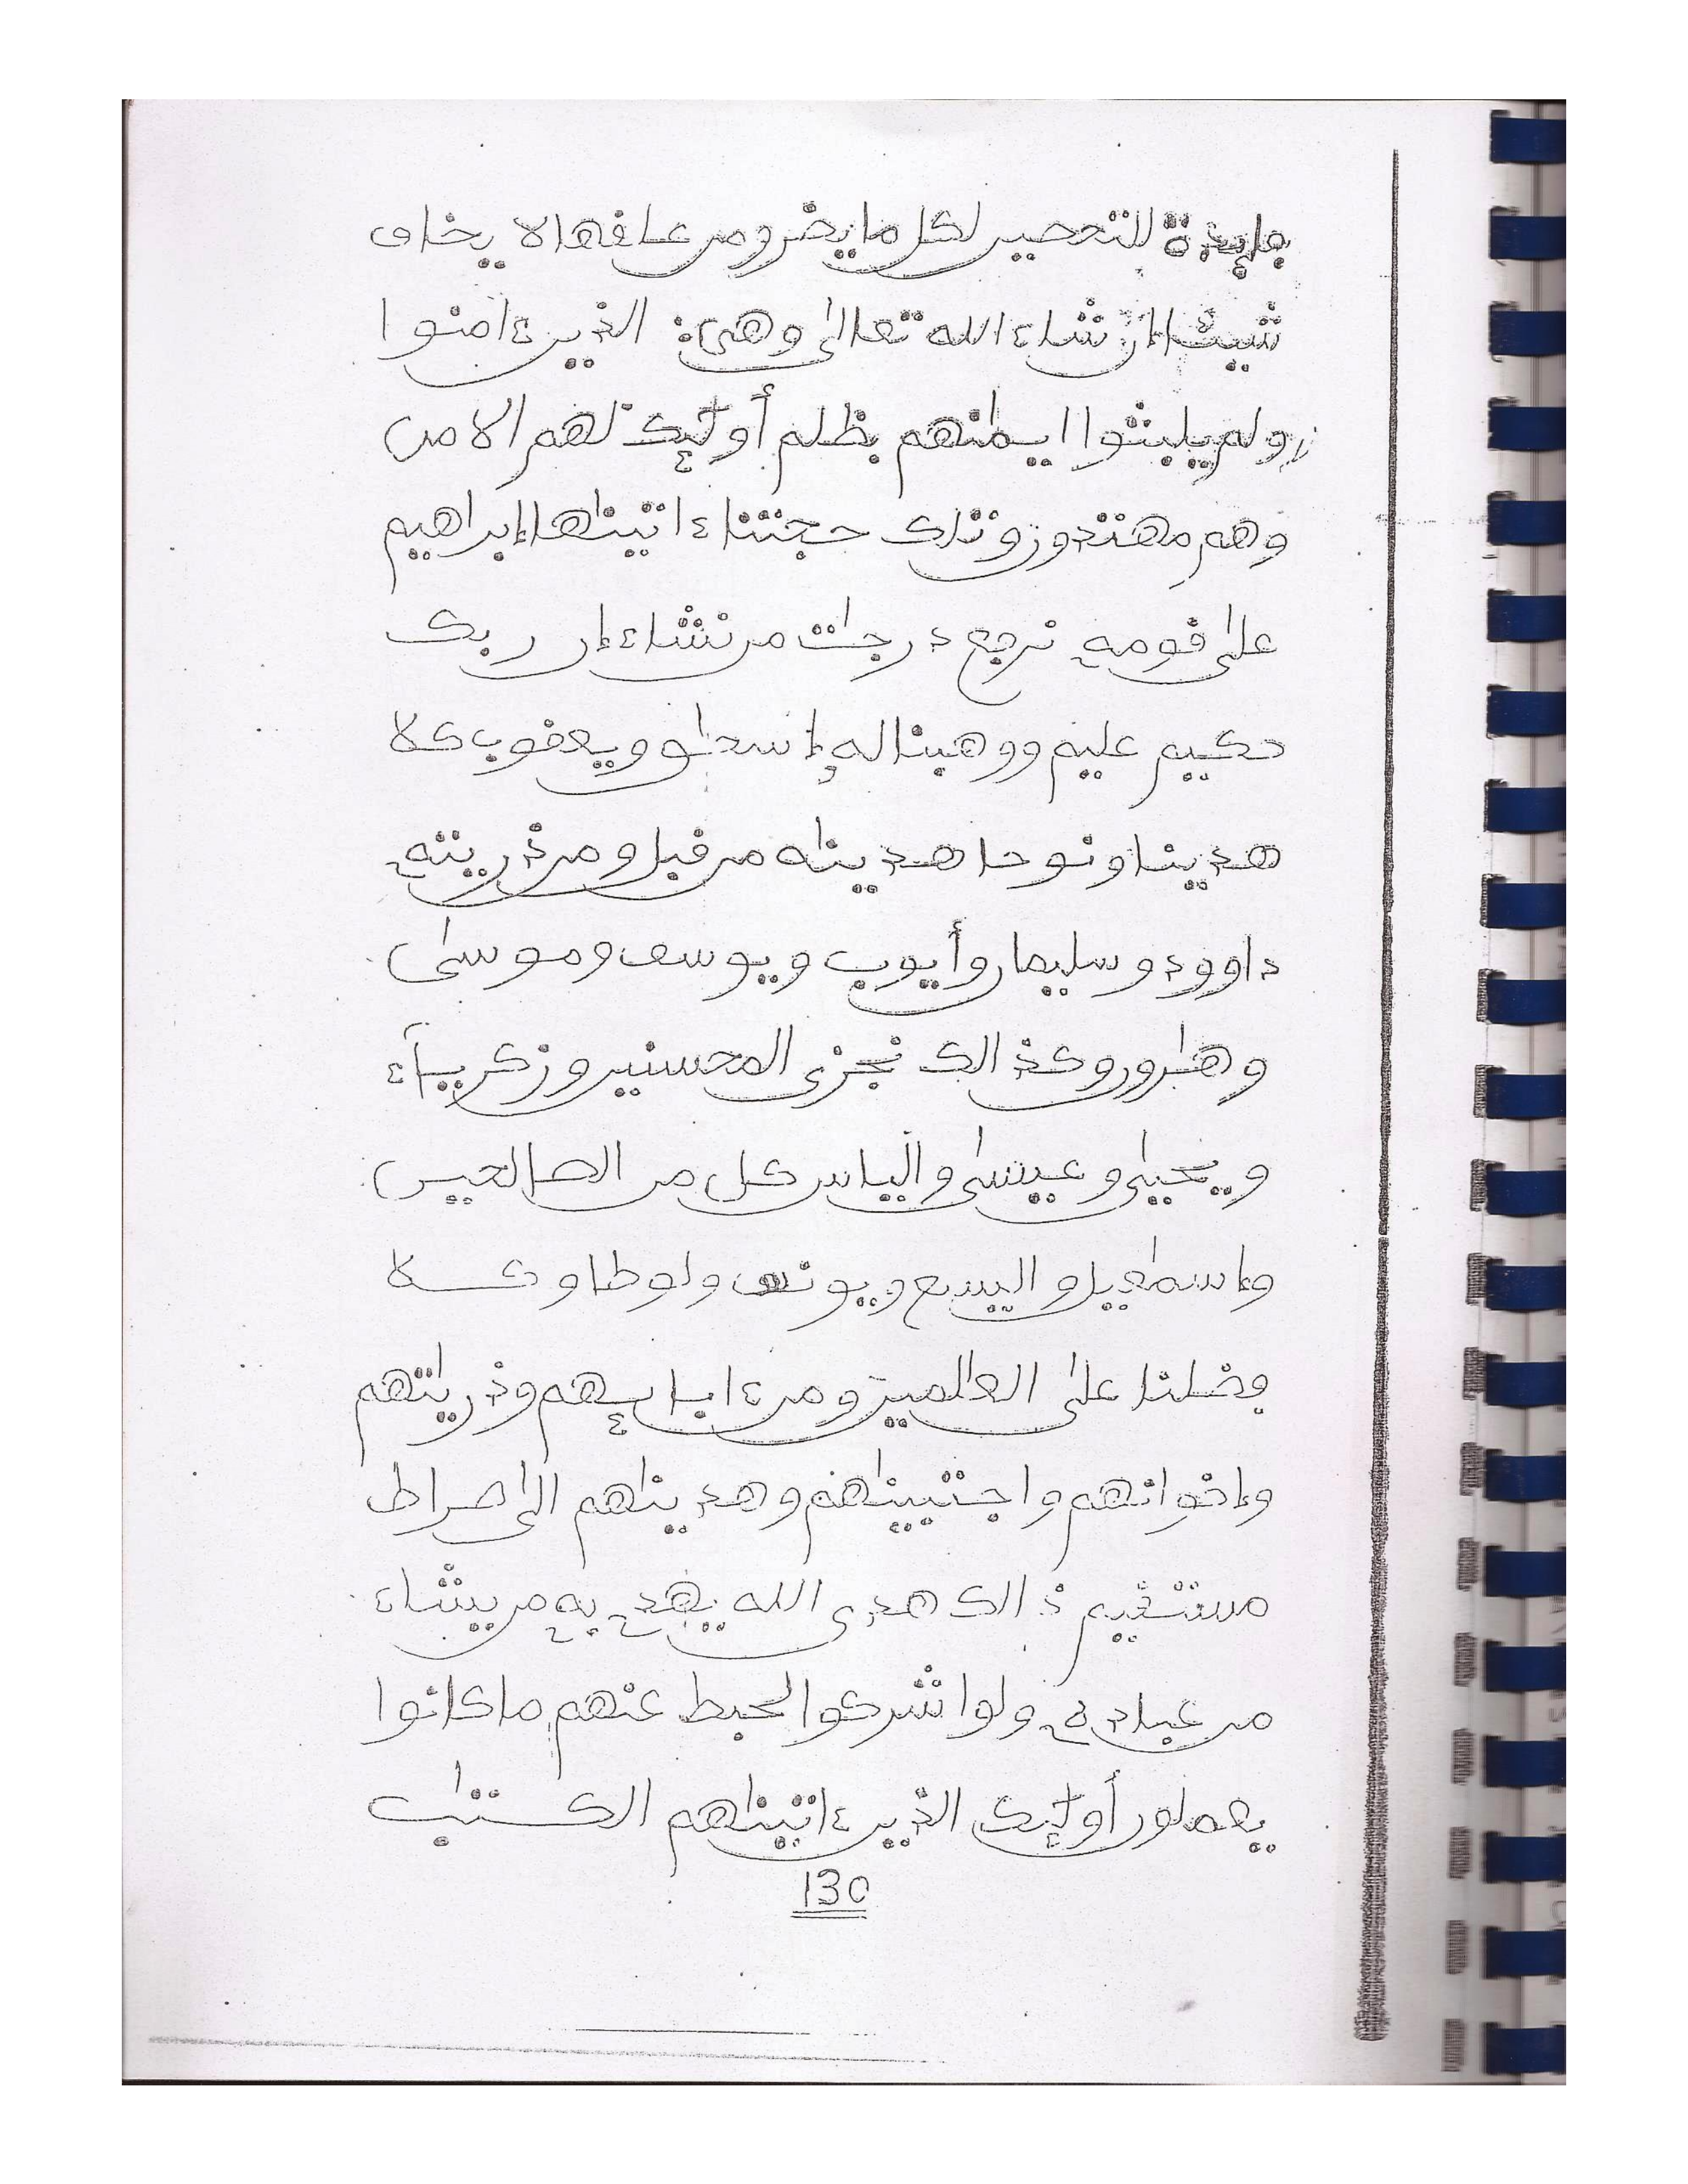 فايدة للتحصين لكل ما يضر ومن علفها لا يخاف
شيئا إن شاء الله تعالى وهي: الذين ءامنوا
ولم يلبسوا إيمنهم بظلم أولئك لهم الامن
وهم مهتدون وتلك حجتنا ءاتينها إبراهيم
على قومه نرفع درجت من نشاء إن ربك
حكيم عليم ووهبنا له إسحق ويعقوب كلا
هدينا ونوحا هدينه من قبل ومن ذريته
داوود وسليمان وأيوب ويوسف وموسى
وهرون وكذالك نجزى المحسنين وزكرياء
ويحيى وعيسى وإلياس كل من الصالحين
وإسمعيل واليسع ويونس ولوطا وكلا
فضلنا على العلمين ومن ءابايهم وذريتهم
وإخوانهم واجتبينهم وهدينهم الى صراط
مستقيم ذالك هدى الله يهدے به من يشاء
من عباده ولو اشركوا لحبط عنهم ما كانوا
يعملون أولئك الذين ءاتينهم الكتب
130